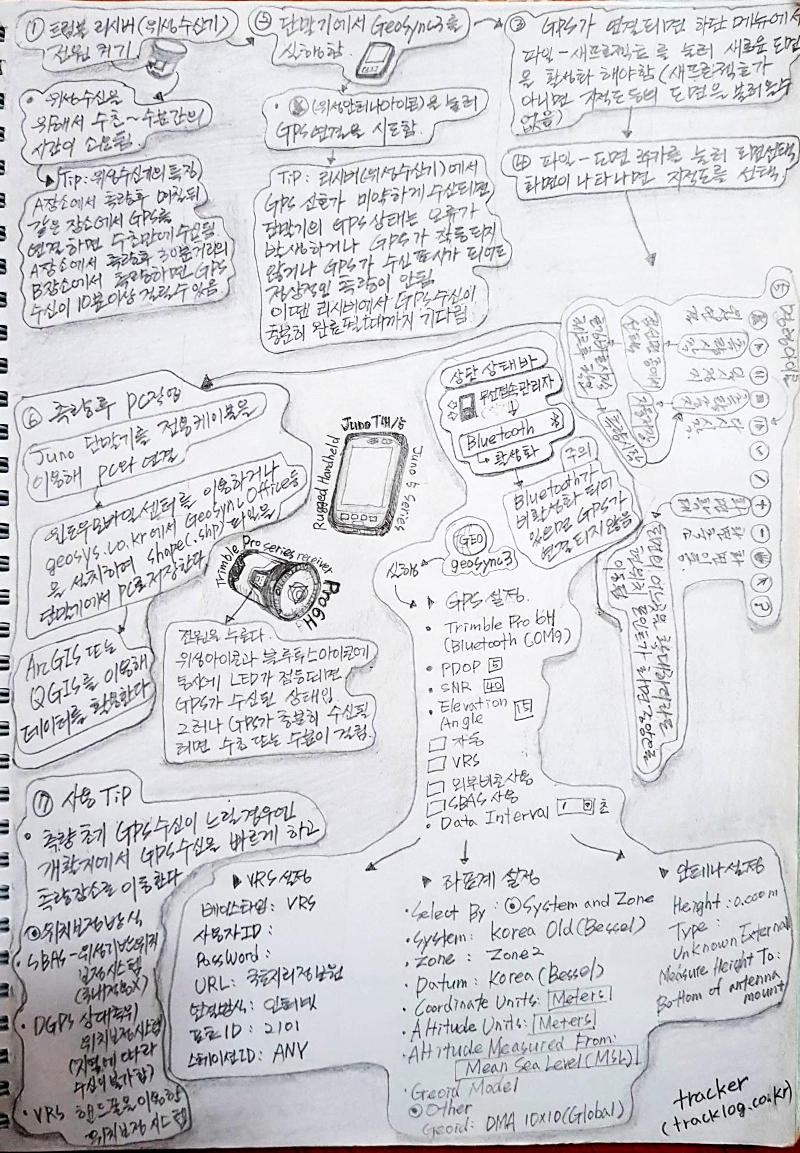 ① 트림블 리시버(위성수신기)
전원 켜기
• 위성수신을
위해서 수초~수분간의
시간이 소요됨
Tip: 위성수신기의 특징
A장소에서 측량후 며칠뒤
같은 장소에서 GPS를
연결하면 수초만에 수신됨
A장소에서 측량후 30분거리의
B장소에서 측량하면 GPS
수신이 10분이상 걸릴수 있음
② 단말기에서 GeoSync3를
실행함.
• (위성안테나아이콘)을 눌러
GPS연결을 시도함.
Tip: 리시버(위성수신기)에서
GPS 신호가 미약하게 수신되면
단말기의 GPS상태는 오류가
발생하거나 GPS가 작동되지
않거나 GPS가 수신표시가 되어도
정상적인 측량이 안됨
이땐 리시버에서 GPS수신이
충분히 완료될때까지 기다림
③ GPS가 연결되면 하단 메뉴에서
파일-새프로젝트를 눌러 새로운 도면
을 활성화 해야함(새프로젝트가
아니면 지적도등의 도면을 불러올수
없음)
④ 파일-도면 추가를 눌러 화면선택
화면이 나타나면 지적도를 선택,
⑤
위성연결
측량시작
일시정지
화면확대
화면축소
화면이동
⑥ 측량후 PC작업
Juno 단말기를 전용케이블을
이용해 PC와 연결
윈도우모바일센터를 이용하거나
geosys.co.kr에서 GeoSync Office등
을 설치하여 shape(.shp)파일을
단말기에서 PC로저장한다.
ArcGIS 또는
QGIS를 이용해
데이터를 활용한다
Juno T41/5
Rugged Handheld
Juno 5 Series
Trimble Pro series receiver
Pro 6H
전원을 누른다.
위성아이콘과 블루투스아이콘에
동시에 LED가 점등되면
GPS가 수신된 상태임
그러나 GPS가 충분히 수신될
려면 수초 또는 수분이 걸림.
상단 상태바
무선접속관리자
Bluetooth
↳ 활성화
주의
Bluetooth가
비활성화 되어
있으면 GPS가
연결되지 않음
GEO
geosync3
실행
▶ GPS 설정.
• Trimble Pro 6H
(Bluetooth COM9)
• PDOP 5
• SNR 40
• Elevation
Angle 15
□ 자동
□ VRS
□ 외부비콘사용
□ SBAS 사용
• Data Interval 1 초
⑦ 사용 Tip
• 측량 초기 GPS수신이 느릴경우엔
개활지에서 GPS수신을 빠르게 하고
측량장소로 이동한다
⊙위치보정방식
• SBAS-위성기반위치
보정시스템
• DGPS 상대측위
위치보정시스템
(지역에 따라
수신이 불가함)
• VRS 핸드폰을 이용한
위치보정시스템
▶ VRS 설정
베이스타입: VRS
사용자ID:
Password:
URL: 국토지리정보원
연결방식: 인터넷
포트ID: 2101
스테이션ID: ANY
▶ 좌표계 설정
• Select By: ⊙System and Zone
• System: Korea Old (Bessel)
• Zone: Zone 2
• Datum: Korea (Bessel)
• Coordinate Units: Meters
• Altitude Units: Meters
• Altitude Measured From:
Mean Sea Level (MSL)
• Geoid Model
⊙ Other
Geoid: DMA 10x10 (Global)
▶ 안테나설정
Height: 0.000m
Type:
Unknown External
Measure Height To:
Bottom of antenna
mount
tracker
(tracklog.co.kr)